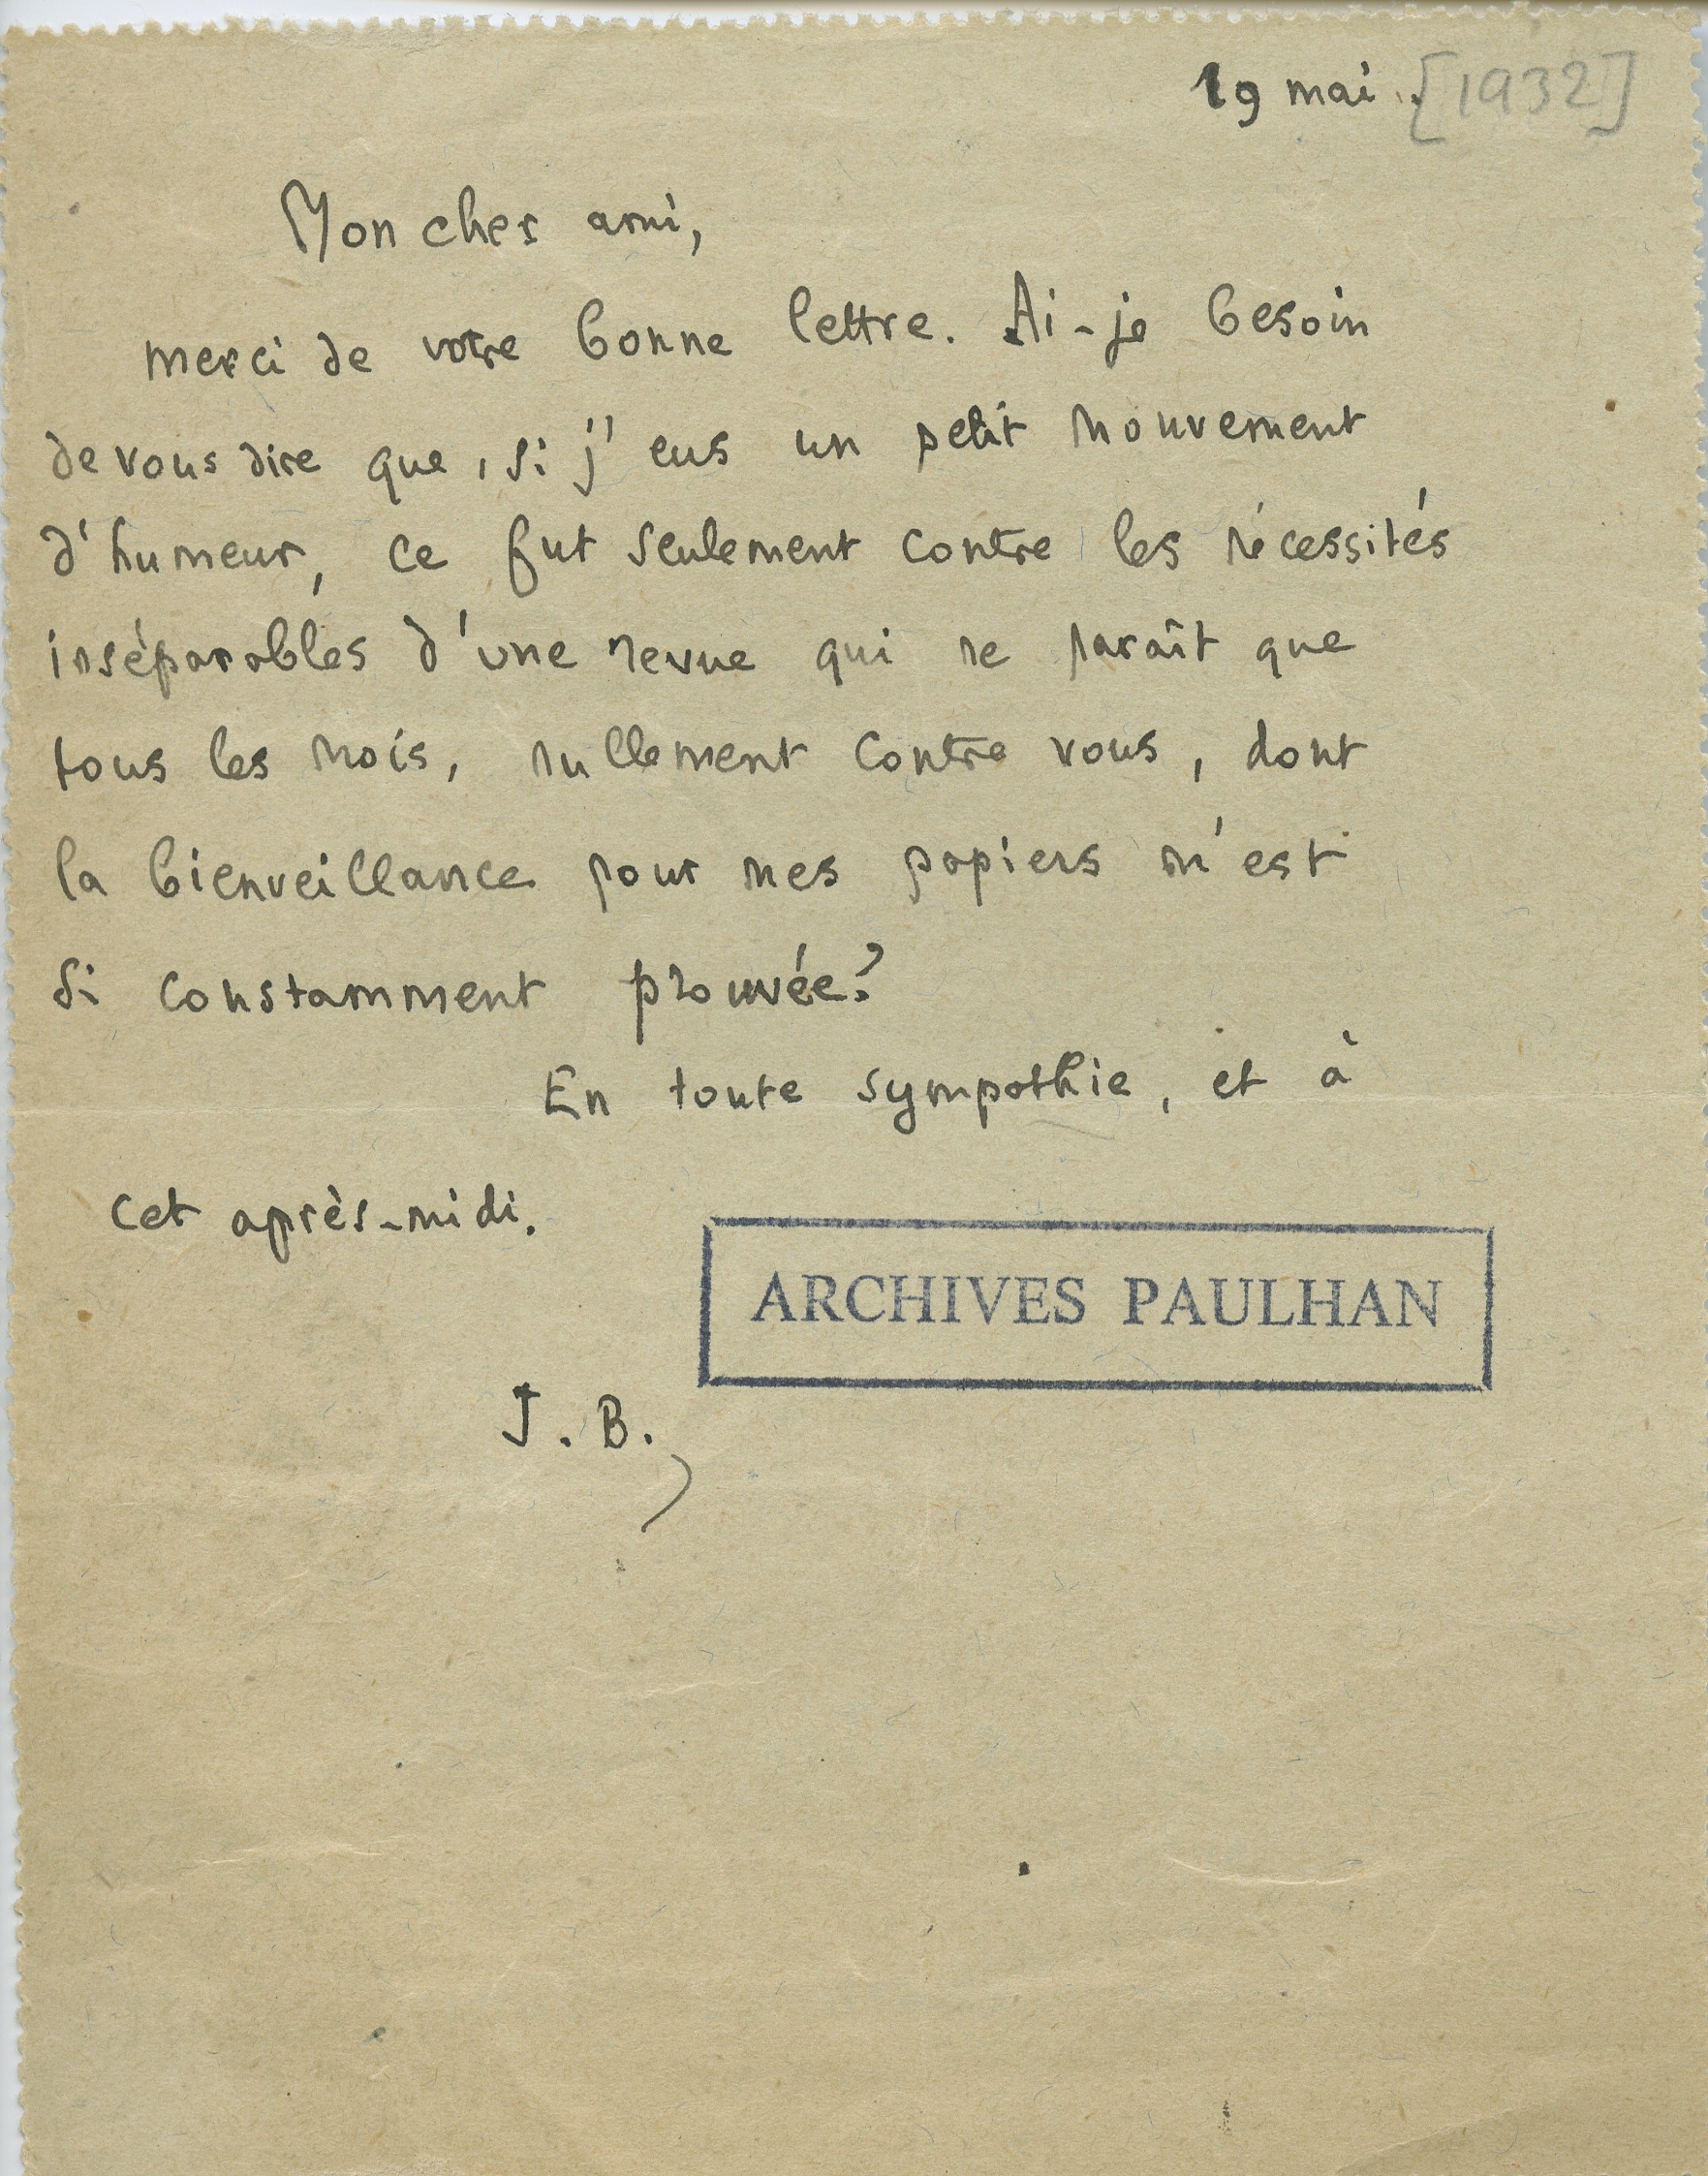 19 mai. [1932]
Mon cher ami,
merci de votre bonne lettre. Ai-je besoin
de vous dire que, si j'eus un petit mouvement
d'humeur, ce fut seulement contre les nécessités
inséparables d'une revue qui ne paraît que
tous les mois, nullement contre vous, dont
la bienveillance pour mes papiers m'est
si constamment prouvée?
En toute sympathie, et à
cet après-midi.
ARCHIVES PAULHAN
J. B.